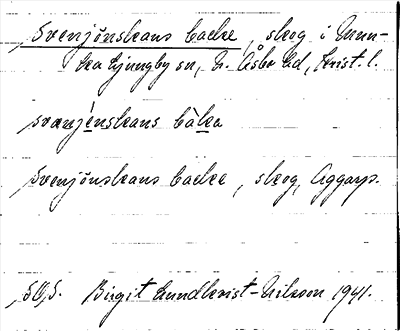 Svenjönskans backe, skog i Mun-
ka Ljungby sn, N. Åsbo hd, Krist. l.
svænjènskans bàka
Svenjönskans backe, skog, Aggarp.
Birgit Lundkvist-Nilsson 1941.